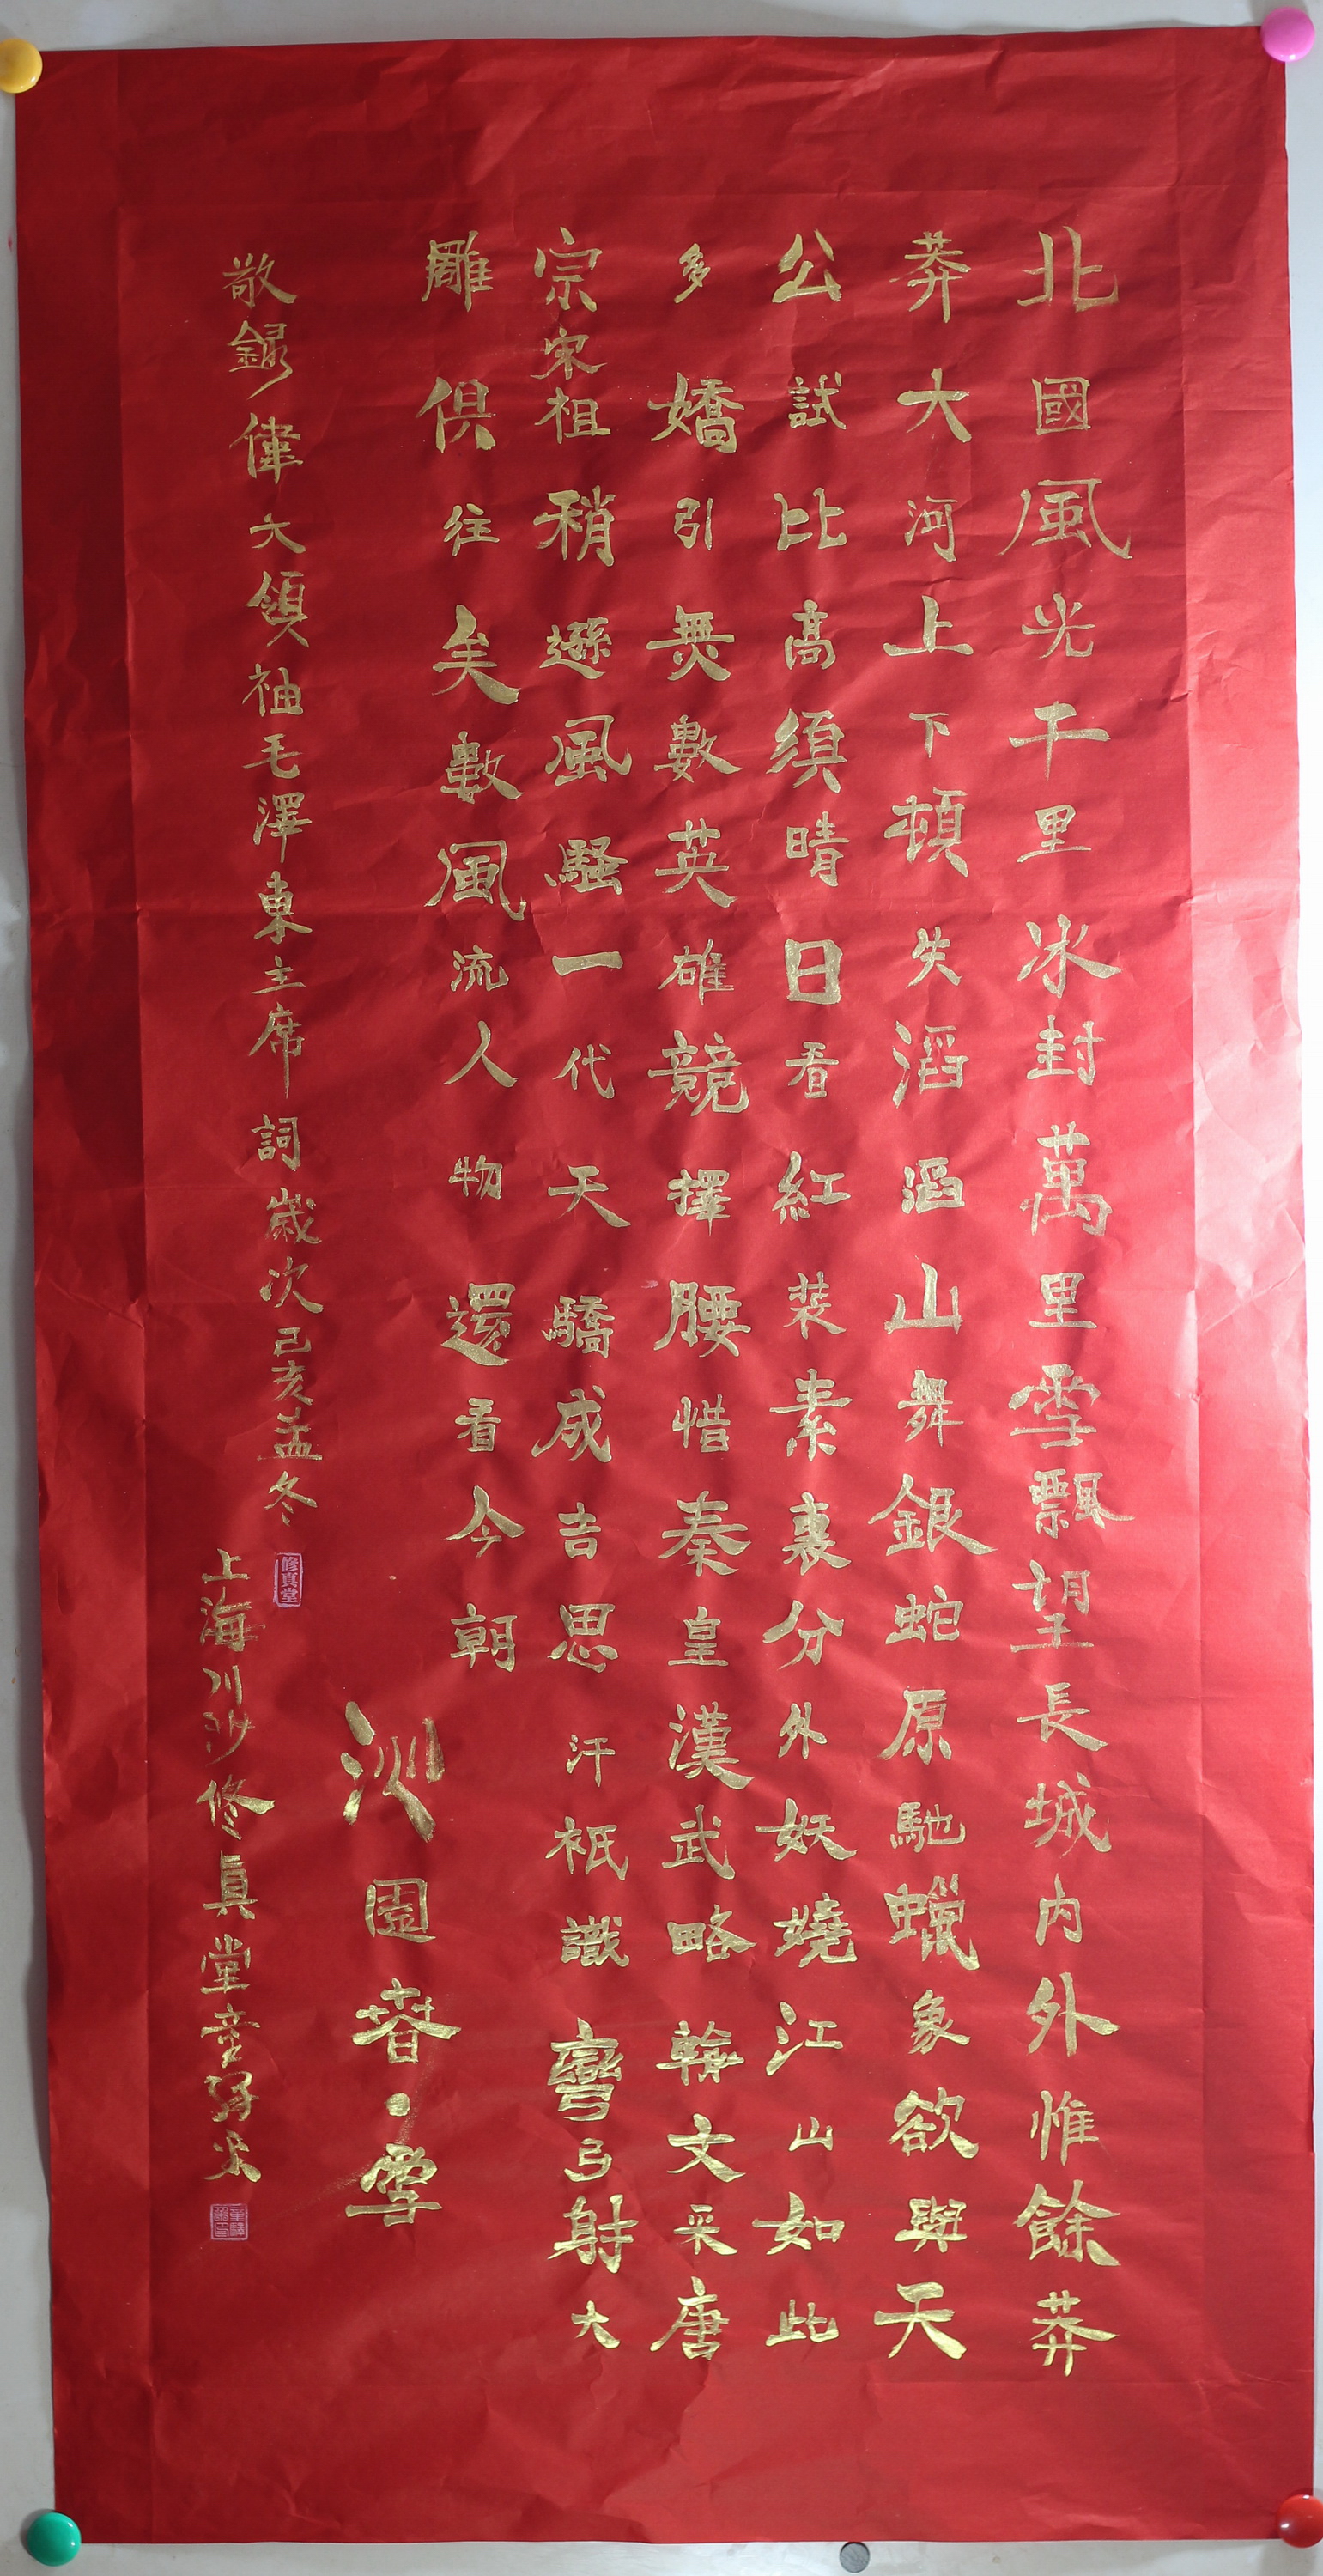 北國風光千里冰封萬里雪飄望長城内外惟餘莽
莽大河上下頓失滔滔山舞銀蛇原馳蠟象欲與天
公試比高須晴日看紅裝素裹分外妖嬈江山如此
多嬌引無數英雄競擇腰惜秦皇漢武略輸文采唐
宗宋祖稍遜風騷一代天驕成吉思汗祇識彎弓射大
雕俱往矣數風流人物還看今朝
沁園春·雪
敬錄偉大領袖毛澤東主席詞歲次己亥孟冬
修真堂
上海川沙修真堂童